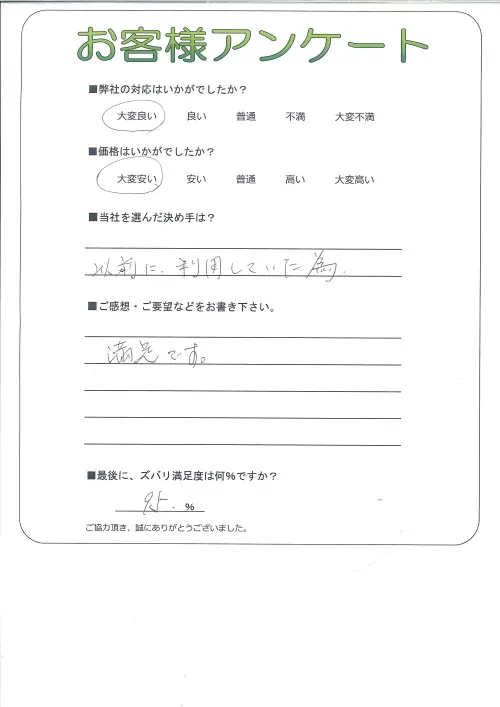 お客様アンケート
■弊社の対応はいかがでしたか？
大変良い 良い 普通 不満 大変不満
■価格はいかがでしたか？
大変安い 安い 普通 高い 大変高い
■当社を選んだ決め手は？
以前に、利用していた為.
■ご感想・ご要望などをお書き下さい。
満足です。
■最後に、ズバリ満足度は何％ですか？
95. %
ご協力頂き、誠にありがとうございました。